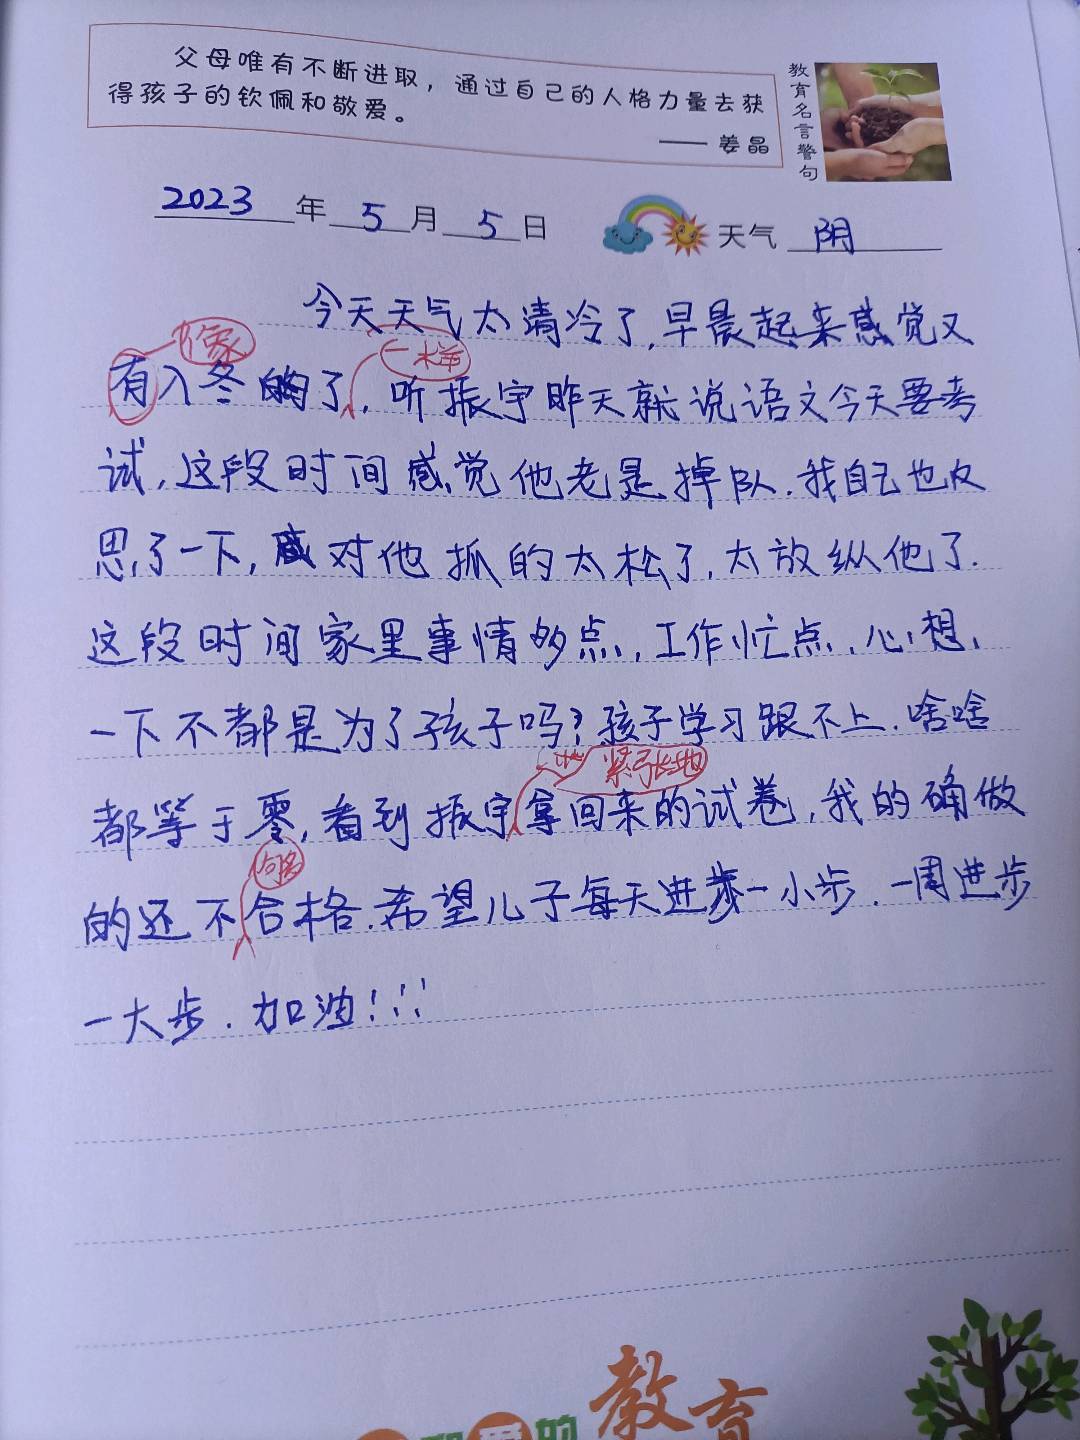 父母唯有不断进取，通过自己的人格力量去获
得孩子的钦佩和敬爱。
—— 姜晶
教育名言警句
2023年5月5日 天气 阴
今天天气太清冷了,早晨起来感觉又
像
一样
有入冬的了,听振宇昨天就说语文今天要考
试,这段时间感觉他老是掉队.我自己也反
思了一下,感对他抓的太松了,太放纵他了.
这段时间家里事情多点,工作忙点,心想,
一下不都是为了孩子吗?孩子学习跟不上.啥啥
紧张地
都等于零,看到振宇拿回来的试卷,我的确做
的还不合格.希望儿子每天进步一小步.一周进步
一大步.加油!!!
爱的教育